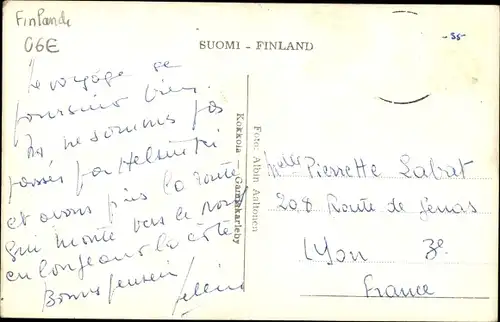 Finlande
06E
- 55-
SUOMI - FINLAND
Le voyage se
poursuit bien.
Ns ne sommes pas
passés par Helsinki
et avons pris la route
qui monte vers le nord
en longeant la côte
Bonnes pensées
Kokkola — Gamlakarleby
Foto: Albin Aaltonen
Melle Pierrette Labat
208 Route de Genas
Lyon 3e
France